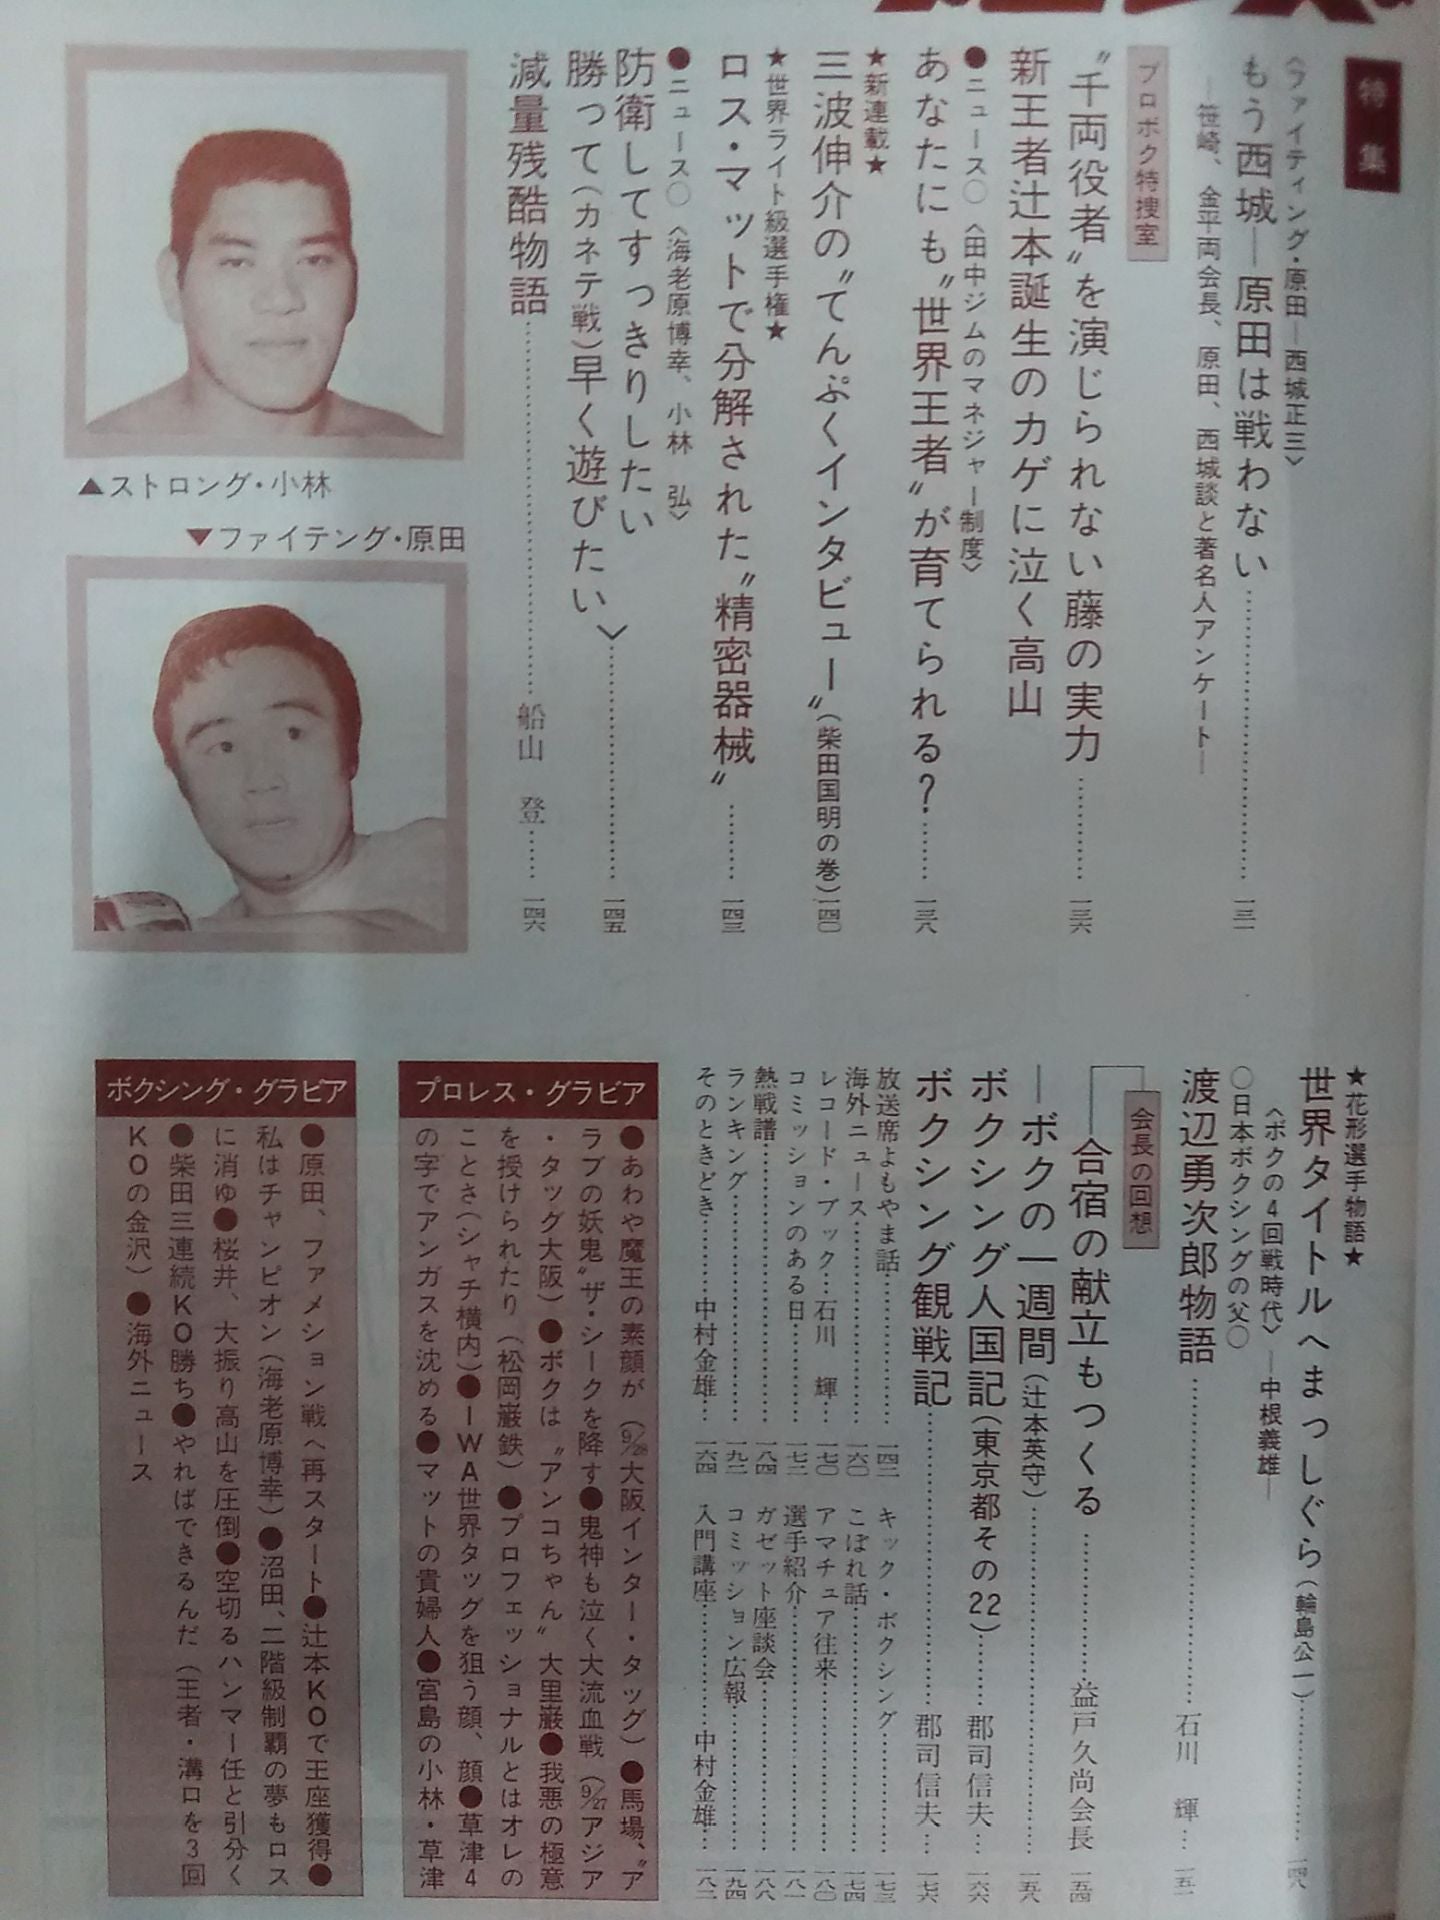 特集
〈ファイティング・原田―西城正三〉
もう西城―原田は戦わない……一三一
―笹崎、金平両会長、原田、西城談と著名人アンケート―
プロボク特捜室
〝千両役者〟を演じられない藤の実力……一三六
新王者辻本誕生のカゲに泣く高山
●ニュース○〈田中ジムのマネジャー制度〉
あなたにも〝世界王者〟が育てられる?……一三八
★新連載★
三波伸介の〝てんぷくインタビュー〟(柴田国明の巻)一四〇
★世界ライト級選手権★
ロス・マットで分解された〝精密器械〟……一四三
●ニュース○〈海老原博幸、小林 弘〉
防衛してすっきりしたい
勝って(カネテ戦)早く遊びたい〉……一四五
減量残酷物語……船山 登……一四六
▲ストロング・小林
▼ファイテング・原田
★花形選手物語★
世界タイトルへまっしぐら(輪島公一)……一四八
〈ボクの4回戦時代〉―中根義雄―
○日本ボクシングの父○
渡辺勇次郎物語……石川 輝……一五二
会長の回想
―合宿の献立もつくる……益戸久尚会長 一五四
―ボクの一週間(辻本英守)……一五八
ボクシング人国記(東京都その22)……郡司信夫…一六六
ボクシング観戦記……郡司信夫…一七六
放送席よもやま話……一四二
海外ニュース……一六〇
レコード・ブック…石川 輝…一七〇
コミッションのある日……一七二
熱戦譜……一八四
ランキング……一九二
そのときどき……中村金雄…一六四
キック・ボクシング……一七三
こぼれ話……一七四
アマチュア往来……一八〇
選手紹介……一八一
ガゼット座談会……一八八
コミッション広報……一九四
入門講座……中村金雄…一八二
プロレス・グラビア
●あわや魔王の素顔が(9/28大阪インター・タッグ)●馬場、〝ア
ラブの妖鬼〟ザ・シークを降す●鬼神も泣く大流血戦(9/27アジア
・タッグ大阪)●ボクは〝アンコちゃん〟大里巌●我悪の極意
を授けられたり(松岡巌鉄)●プロフェッショナルとはオレの
ことさ(シャチ横内)●IWA世界タッグを狙う顔、顔●草津4
の字でアンガスを沈める●マットの貴婦人●宮島の小林・草津
ボクシング・グラビア
●原田、ファメション戦へ再スタート●辻本KOで王座獲得●
私はチャンピオン(海老原博幸)●沼田、二階級制覇の夢もロス
に消ゆ●桜井、大振り高山を圧倒●空切るハンマー任と引分く
●柴田三連続KO勝ち●やればできるんだ(王者・溝口を3回
KOの金沢)●海外ニュース